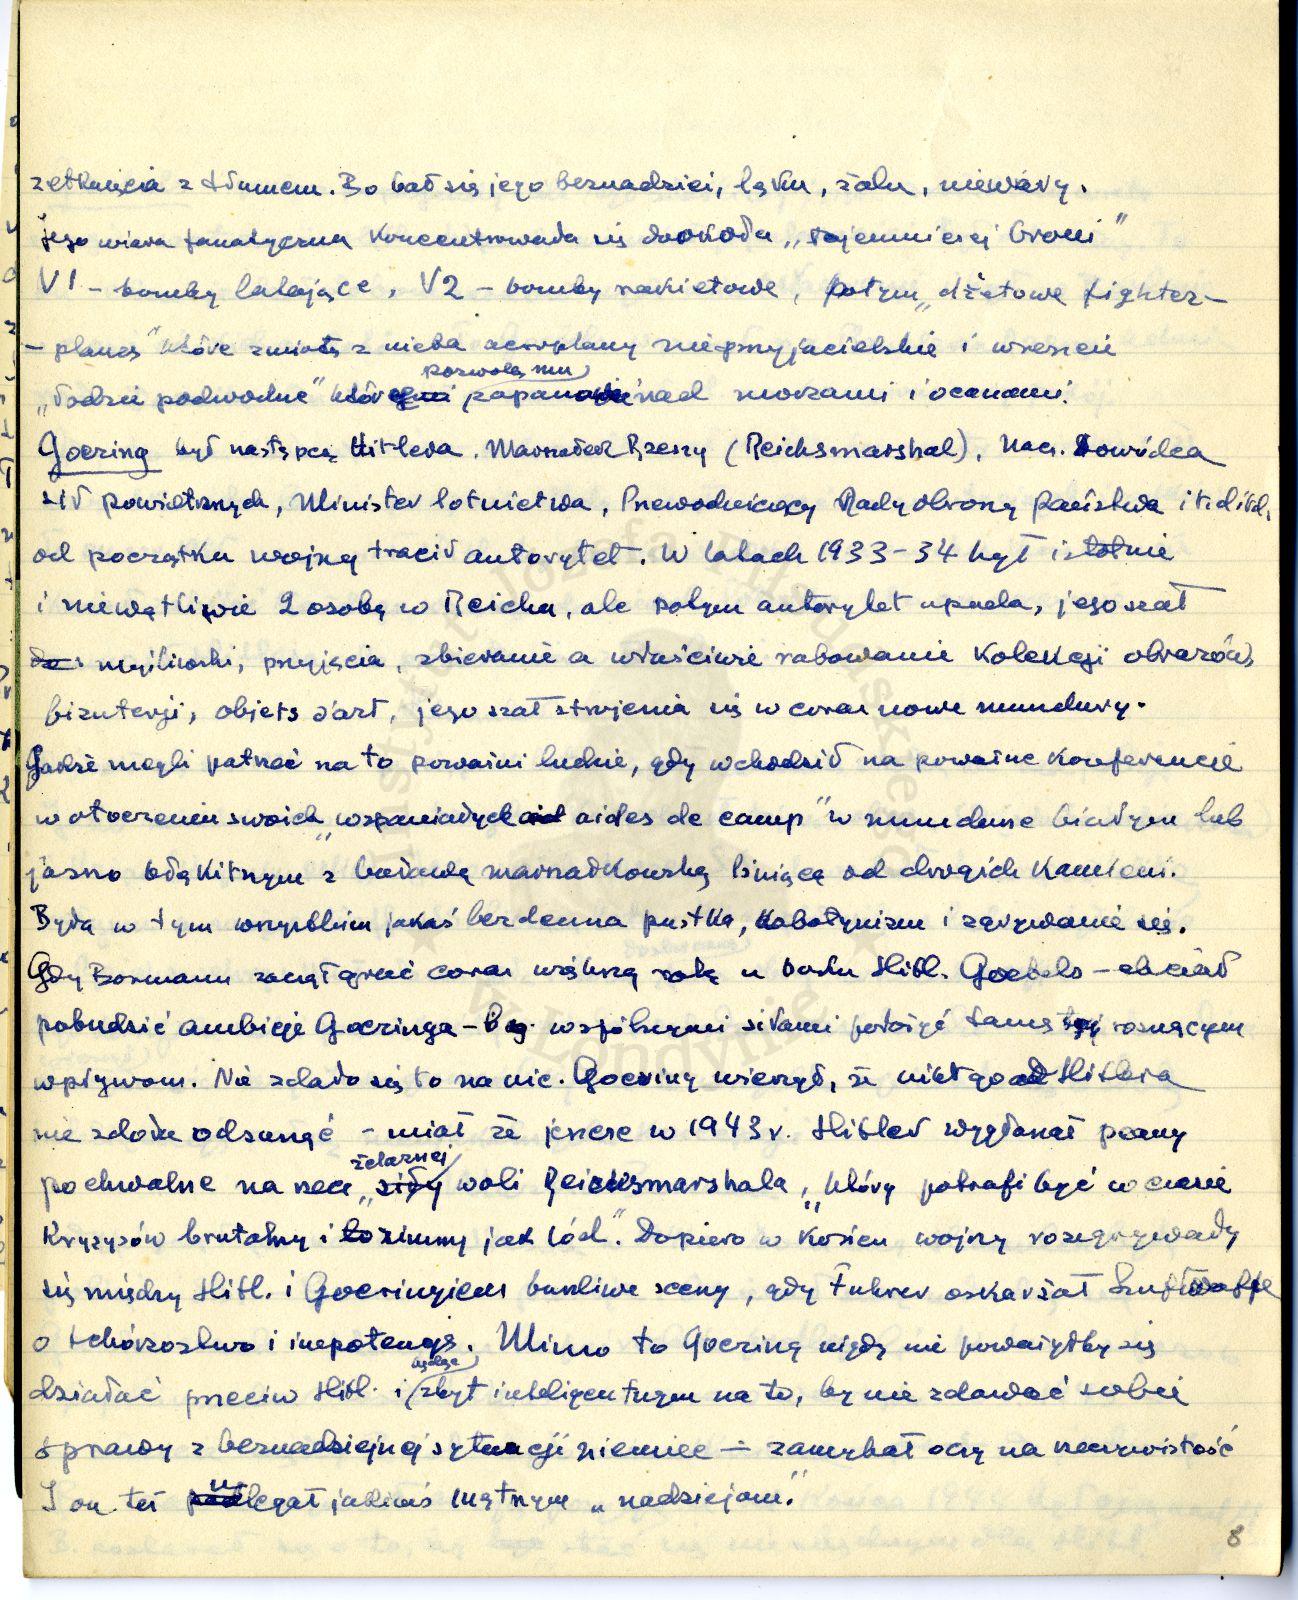 zetknięcia z tłumem. Bo bał się jego beznadziei, lęku, żalu, niewiary.
Jego wiara fanatyczna koncentrowała się dookoła „tajemniczej broni”
V1 – bomby latające, V2 – bomby rakietowe, potym „dżetowe fighter–
– planes” które zmiotą z nieba aeroplany nieprzyjacielskie i wreszcie
pozwolą mu
„łodzie podwodne” które zapanować nad morzami i oceanami.
Goering był następcą Hitlera. Marszałek Rzeszy (Reichsmarshal), Nacz. Dowódca
sił powietrznych, Minister lotnictwa, Przewodniczący Rady obrony państwa i t.d. i t.d.
od początku wojny tracił autorytet. W latach 1933–34 był istotnie
i niewątpliwie 2 osobą w Reichu, ale potym autorytet upada, jego szał
myśliwski, przyjęcia, zbieranie a właściwie rabowanie kolekcji obrazów,
biżuterji, objets d'art, jego szał strojenia się w coraz nowe mundury.
Jakże mogli patrzeć na to poważni ludzie, gdy wchodził na poważne konferencje
w otoczeniu swoich „wspaniałych aides de camp” w mundurze białym lub
jasno błękitnym z buławą marszałkowską lśniącą od drogich kamieni.
Była w tym wszystkim jakaś bezdenna pustka, kabotynizm i zgrywanie się.
Gdy Bormann zaczął grać coraz większą rolę u boku Hitl. Goebels – chciał
pobudzić ambicje Goeringa – by wspólnymi siłami położyć tamę rosnącym
wpływom. Nie zdało się to na nic. Goering wierzył, że nikt go od Hitlera
nie zdoła odsunąć – miał że jeszcze w 1943 r. Hitler wygłaszał peany
żelaznej
pochwalne na rzecz „siły woli Reichsmarshala, „który potrafi być w czasie
kryzysów brutalny i zimny jak lód”. Dopiero w końcu wojny rozegrywały
się między Hitl. i Goeringiem burzliwe sceny, gdy Fuhrer oskarżał Luftwaffe
o tchórzostwo i inepotencję. Mimo to Goering nigdy nie poważyłby się
będąc
działać przeciw Hitl. i zbyt inteligentnym na to, by nie zdawać sobie
sprawy z beznadziejnej sytuacji niemiec – zamykał oczy na rzeczywistość
I on też ulegał jakimś mętnym „nadziejom.”
8
Instytut Józefa Piłsudskiego
w Londynie